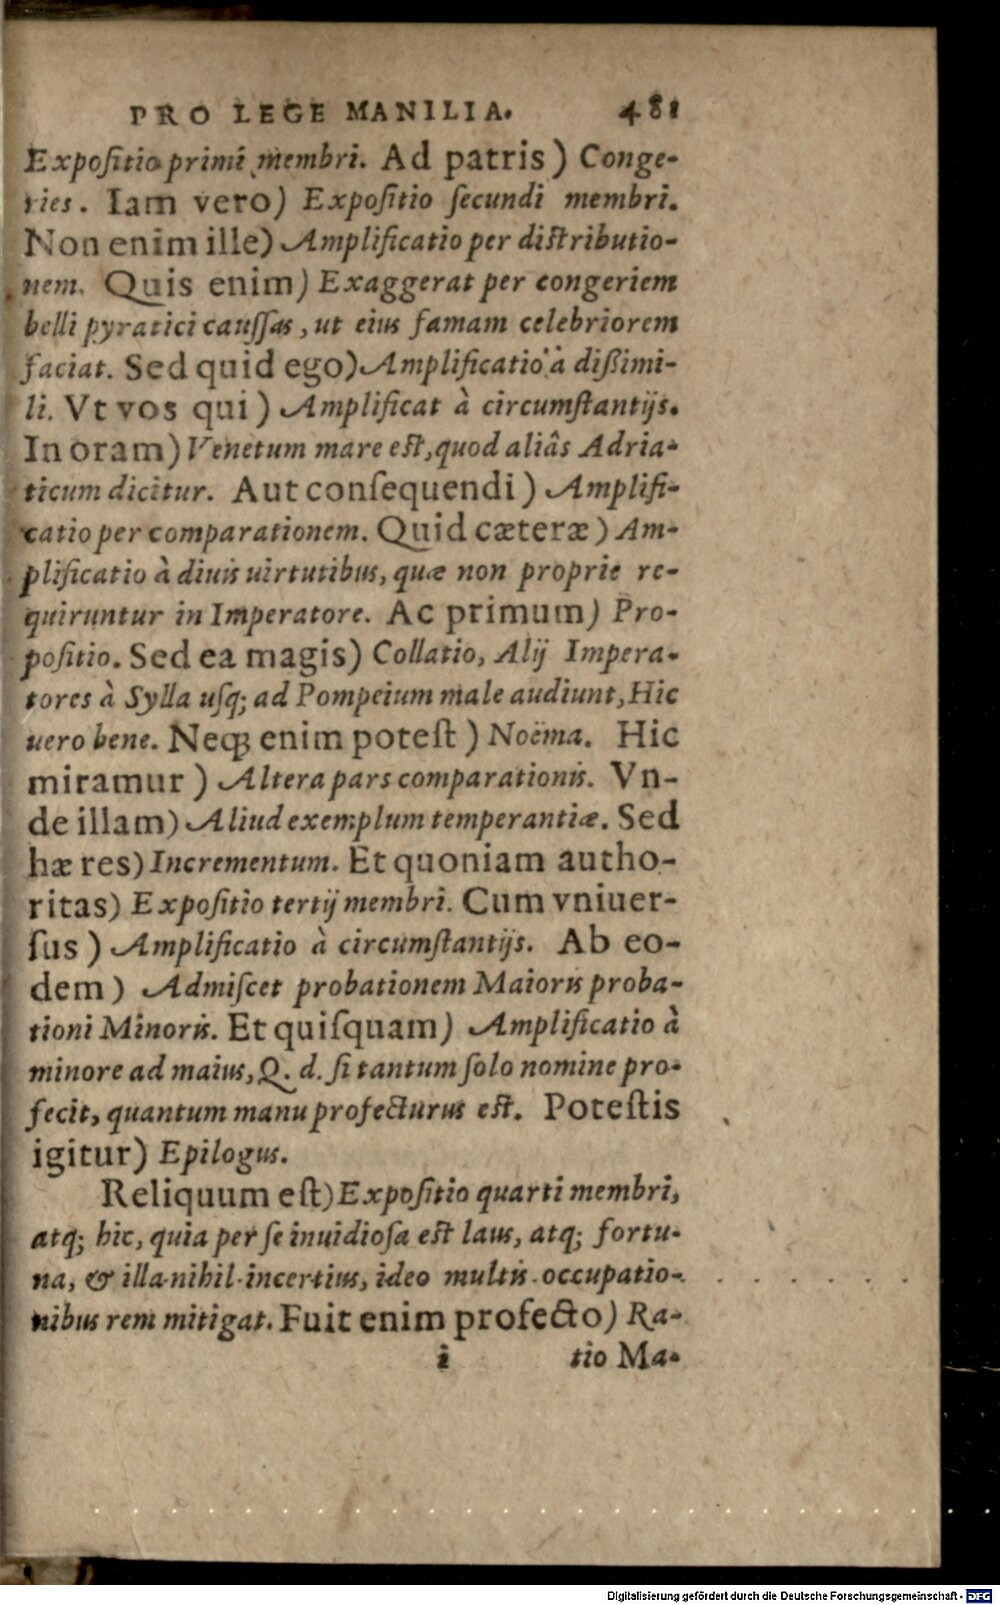 PRO LEGE MANILIA. 481
Expoſitio primi membri. Ad patris) Conge-
ries. Iam vero) Expoſitio ſecundi membri.
Non enim ille) Amplificatio per diſtributio-
nem. Quis enim) Exaggerat per congeriem
belli pyratici cauſſas, ut eius famam celebriorem
faciat. Sed quid ego) Amplificatio à dißimi-
li. Vt vos qui) Amplificat à circumſtantijs.
In oram) Venetum mare eſt, quod aliâs Adria-
ticum dicitur. Aut conſequendi) Amplifi-
catio per comparationem. Quid cæteræ) Am-
plificatio à diuis uirtutibus, quæ non proprie re-
quiruntur in Imperatore. Ac primum) Pro-
poſitio. Sed ea magis) Collatio, Alij Impera-
tores à Sylla uſq; ad Pompeium male audiunt, Hic
uero bene. Neq; enim poteſt) Noëma. Hic
miramur) Altera pars comparationis. Vn-
de illam) Aliud exemplum temperantiæ. Sed
hæ res) Incrementum. Et quoniam autho-
ritas) Expoſitio tertij membri. Cum vniuer-
ſus) Amplificatio à circumſtantijs. Ab eo-
dem) Admiſcet probationem Maioris proba-
tioni Minoris. Et quiſquam) Amplificatio à
minore ad maius, Q. d. ſi tantum ſolo nomine pro-
fecit, quantum manu profecturus eſt. Poteſtis
igitur) Epilogus.
Reliquum eſt) Expoſitio quarti membri,
atq; hic, quia per ſe inuidioſa eſt laus, atq; fortu-
na, & illa nihil incertius, ideo multis occupatio-
nibus rem mitigat. Fuit enim profecto) Ra-
i tio Ma-
Digitalisierung gefördert durch die Deutsche Forschungsgemeinschaft - DFG